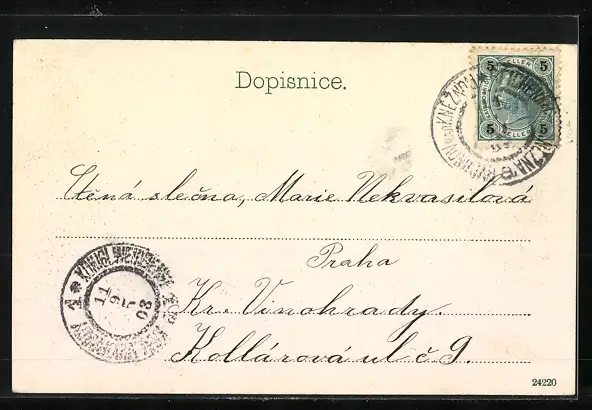 Dopisnice.
5 5
HELLER
5 HELLER 5
Ctěná slečna, Marie Nekvasilová
Praha
Kr. Vinohrady.
Kollárová ul č 9.
11
9
5
03
24220